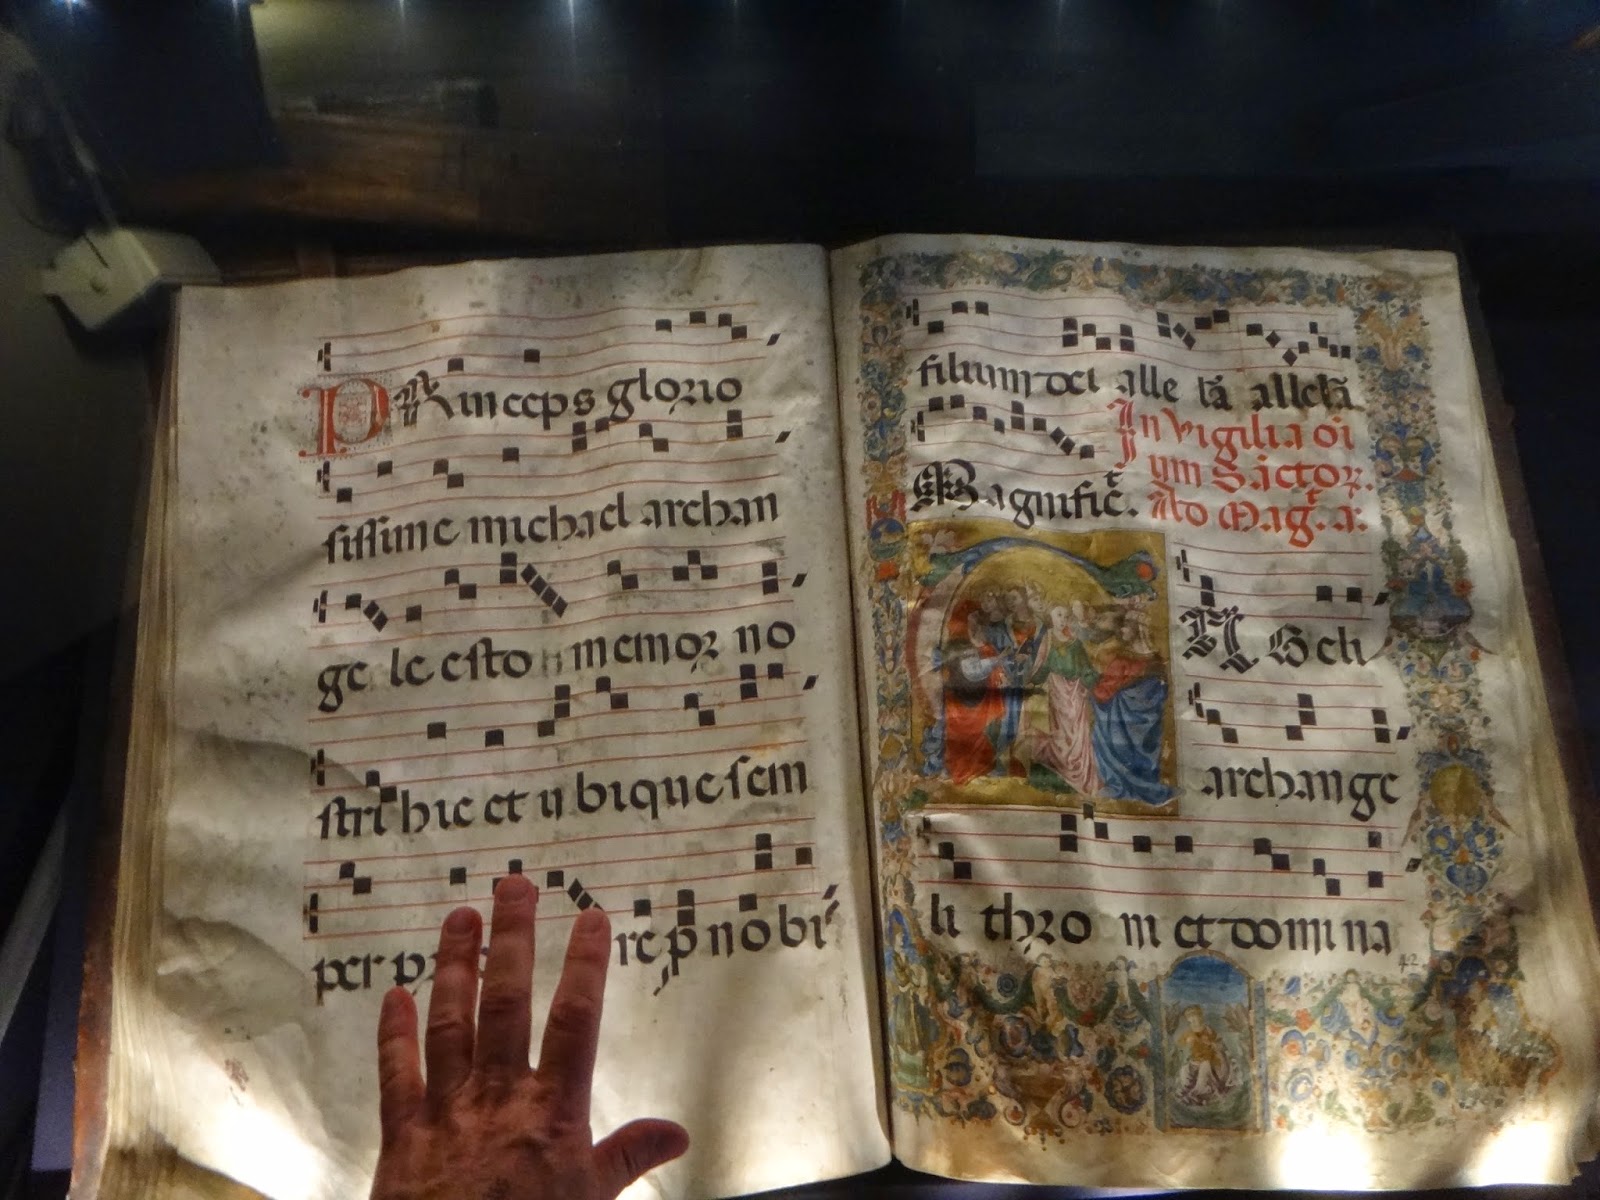 PRinceps glorio
sissime michael archan
ge le esto memor no
stri hic et ubique sem
per p re p nobis
filium dei alle la allela
In vigilia oi
um Sāctoꝝ.
Magnific.
Ad Mag. a.
ANGeli
archange
li thro ni et domina
42